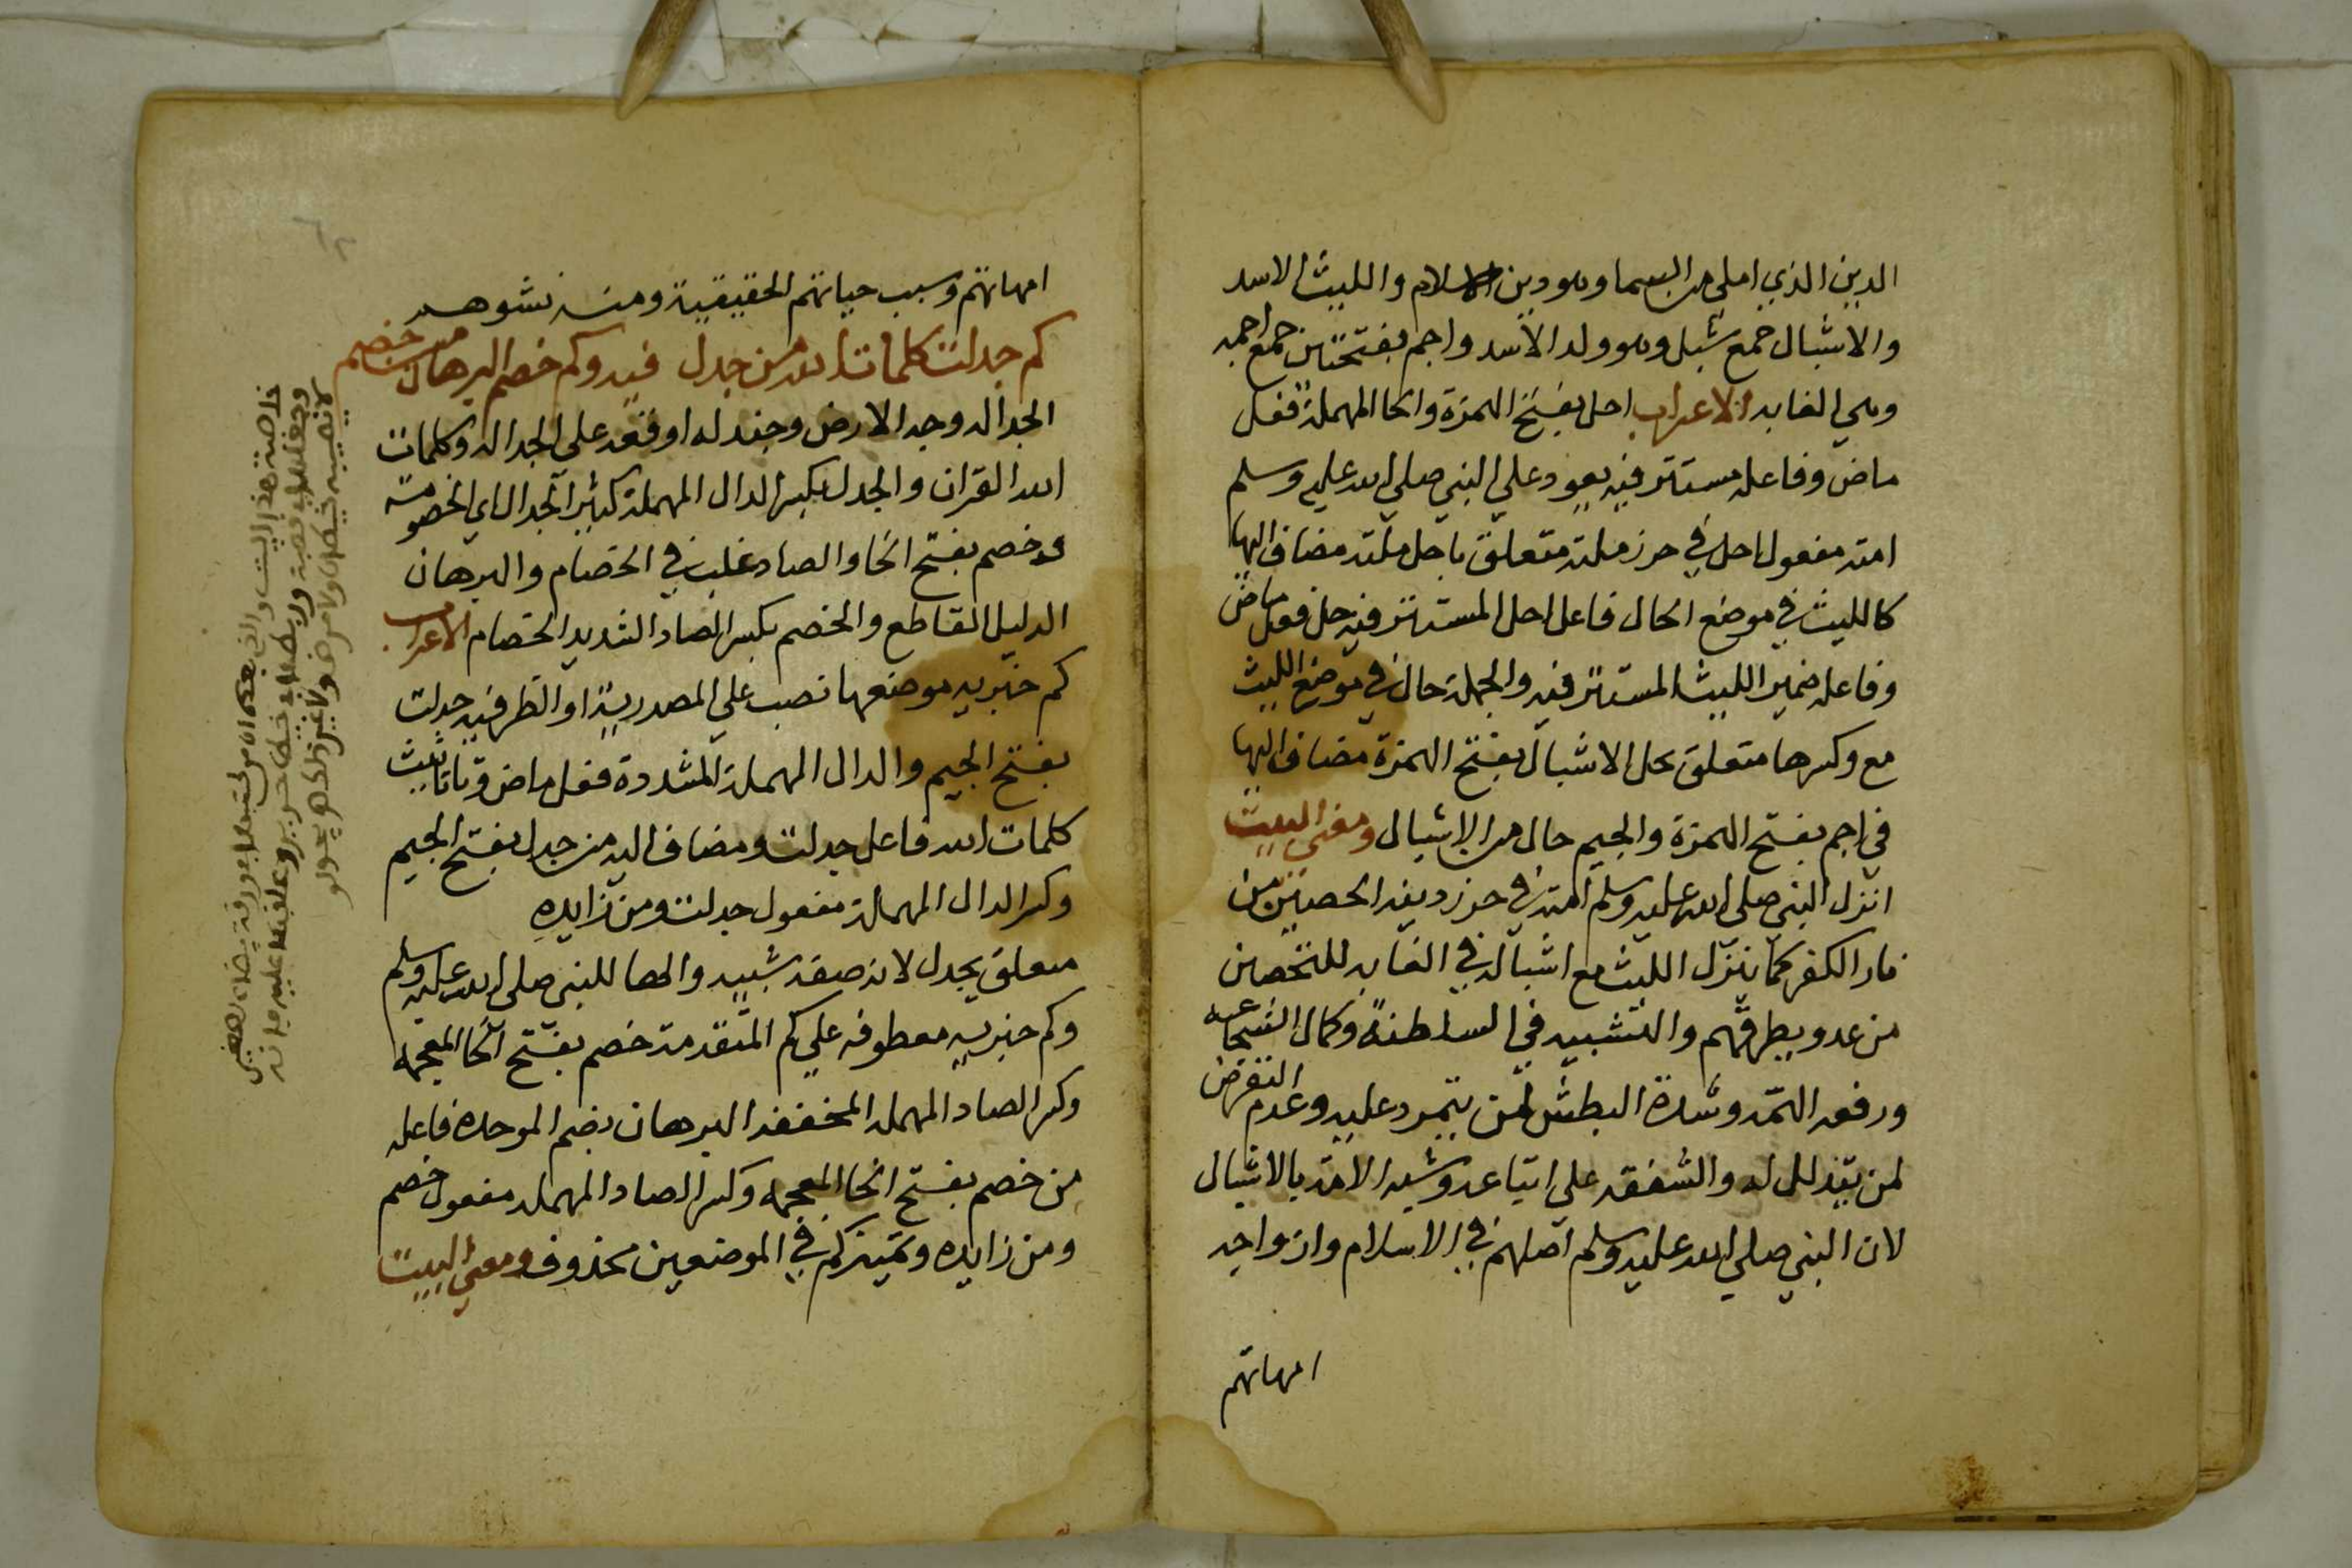 الدين الذي املي من السما وهو دين الاسلام والليث الاسد
والاشبال جمع شبل وهو ولد الاسد واجم بفتحتين جمع اجمه
وهي الغابه الاعراب احل بفتح الهمزة والحا المهملة فعل
ماض وفاعله مستتر فيه يعود علي النبي صلي الله عليه وسلم
امته مفعول احل في حرز ملته متعلق باحل ملته مضاف اليها
كالليث في موضع الحال فاعل احل المستتر فيه حل فعل ماض
وفاعله ضمير الليث المستتر فيه والجملة حال في موضع الليث
مع وكسرها متعلق بحل الاشبال بفتح الهمزة مضاف اليها
في اجم بفتح الهمزة والجيم حال من الاشبال ومعني البيت
انزل النبي صلي الله عليه وسلم امته في حرز دينه الحصين من
نار الكفر كما ينزل الليث مع اشباله في الغابه للتحصين
من عدو يطرقهم والتشبيه في السلطنة وكمال الشجاعه
ورفعه الهمه وشدة البطش لمن يتمرد عليه وعدم التعرض
لمن يتذلل له والشفقه علي اتباعه وشبه الامة بالاشبال
لان النبي صلي الله عليه وسلم اصلهم في الاسلام وازواجه
امهاتهم
امهاتهم وسبب حياتهم الحقيقية ومنه نشوهم
كم جدلت كلمات الله من جدل فيه وكم خصم البرهان من خصم
الجداله وجه الارض وجندله اوقعه علي الجداله وكلمات
الله القران والجدل بكسر الدال المهملة كثير الجدال اي الخصومة
وخصم بفتح الخا والصاد غلب في الخصام والبرهان
الدليل القاطع والخصم بكسر الصاد الشديد الخصام الاعراب
كم خبريه موضعها نصب علي المصدرية او الظرفيه جدلت
بفتح الجيم والدال المهملة المشددة فعل ماض وتا تانيث
كلمات الله فاعل جدلت ومضاف اليه من جدل بفتح الجيم
وكسر الدال المهملة مفعول جدلت ومن زايده
متعلق بجدل لانه صفه شبيه والها للنبي صلي الله عليه وسلم
وكم خبريه معطوفه علي كم المتقدمة خصم بفتح الخا المعجمه
وكسر الصاد المهمله المخففه البرهان بضم الموحده فاعله
من خصم بفتح الخا المعجمه وكسر الصاد المهمله مفعول خصم
ومن زايده وتميز كم في الموضعين محذوف ومعني البيت